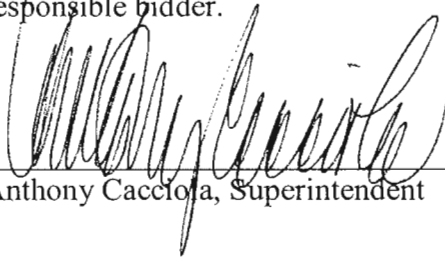 esponsible bidder.
Anthony Cacciola, Superintendent